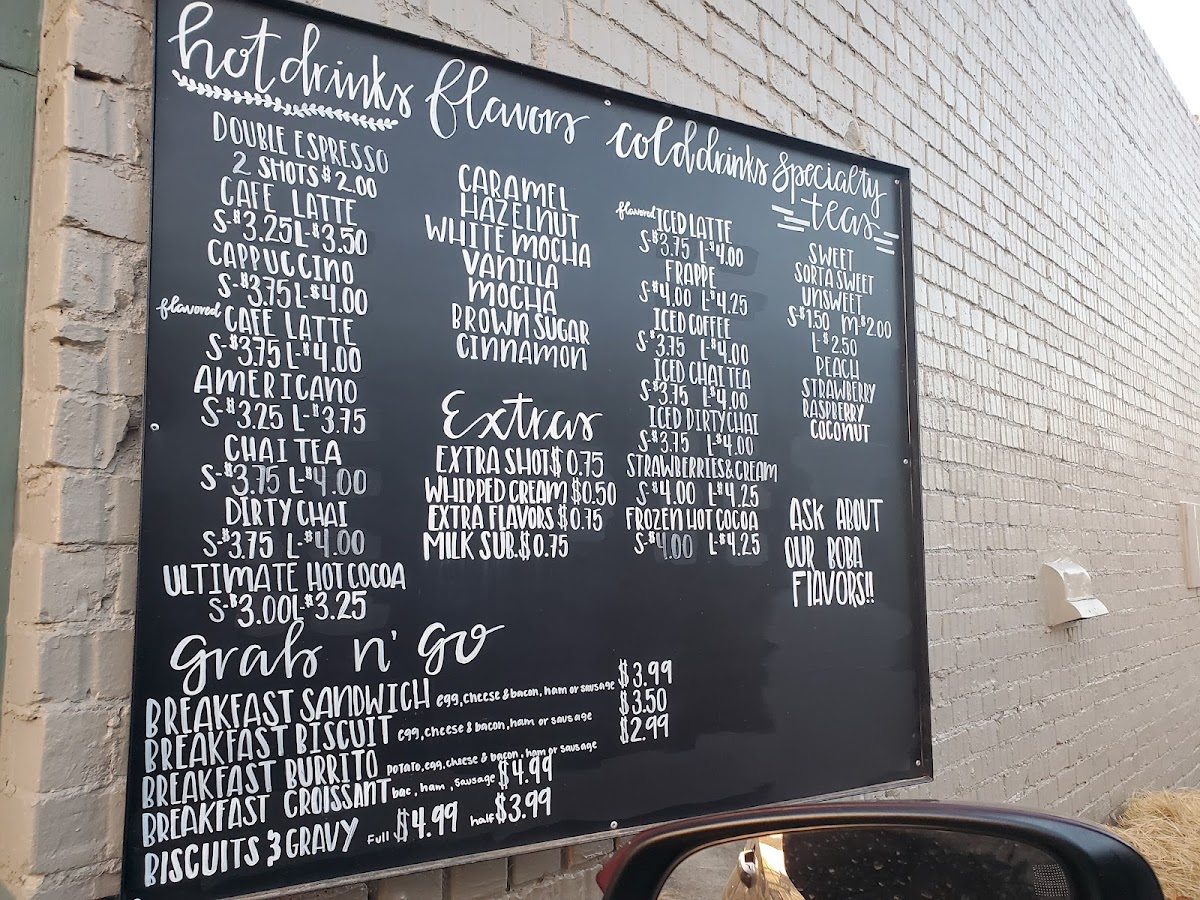 hot drinks
DOUBLE ESPRESSO
2 SHOTS $2.00
CAFE LATTE
S-$3.25 L-$3.50
CAPPUCCINO
S-$3.75 L-$4.00
flavored CAFE LATTE
S-$3.75 L-$4.00
AMERICANO
S-$3.25 L-$3.75
CHAI TEA
S-$3.75 L-$4.00
DIRTY CHAI
S-$3.75 L-$4.00
ULTIMATE HOT COCOA
S-$3.00 L-$3.25
flavors
CARAMEL
HAZELNUT
WHITE MOCHA
VANILLA
MOCHA
BROWN SUGAR
CINNAMON
Extras
EXTRA SHOT $0.75
WHIPPED CREAM $0.50
EXTRA FLAVORS $0.75
MILK SUB. $0.75
cold drinks
flavored ICED LATTE
S-$3.75 L-$4.00
FRAPPE
S-$4.00 L-$4.25
ICED COFFEE
S-$3.75 L-$4.00
ICED CHAI TEA
S-$3.75 L-$4.00
ICED DIRTY CHAI
S-$3.75 L-$4.00
STRAWBERRIES & CREAM
S-$4.00 L-$4.25
FROZEN HOT COCOA
S-$4.00 L-$4.25
specialty
teas
SWEET
SORTA SWEET
UNSWEET
S-$1.50 M-$2.00
L-$2.50
PEACH
STRAWBERRY
RASPBERRY
COCONUT
ASK ABOUT
OUR BOBA
FLAVORS!!
grab n' go
BREAKFAST SANDWICH egg, cheese & bacon, ham or sausage $3.99
BREAKFAST BISCUIT egg, cheese & bacon, ham or sausage $3.50
BREAKFAST BURRITO potato, egg, cheese & bacon, ham or sausage $2.99
BREAKFAST CROISSANT bac, ham, sausage $4.99
BISCUITS & GRAVY Full $4.99 half $3.99